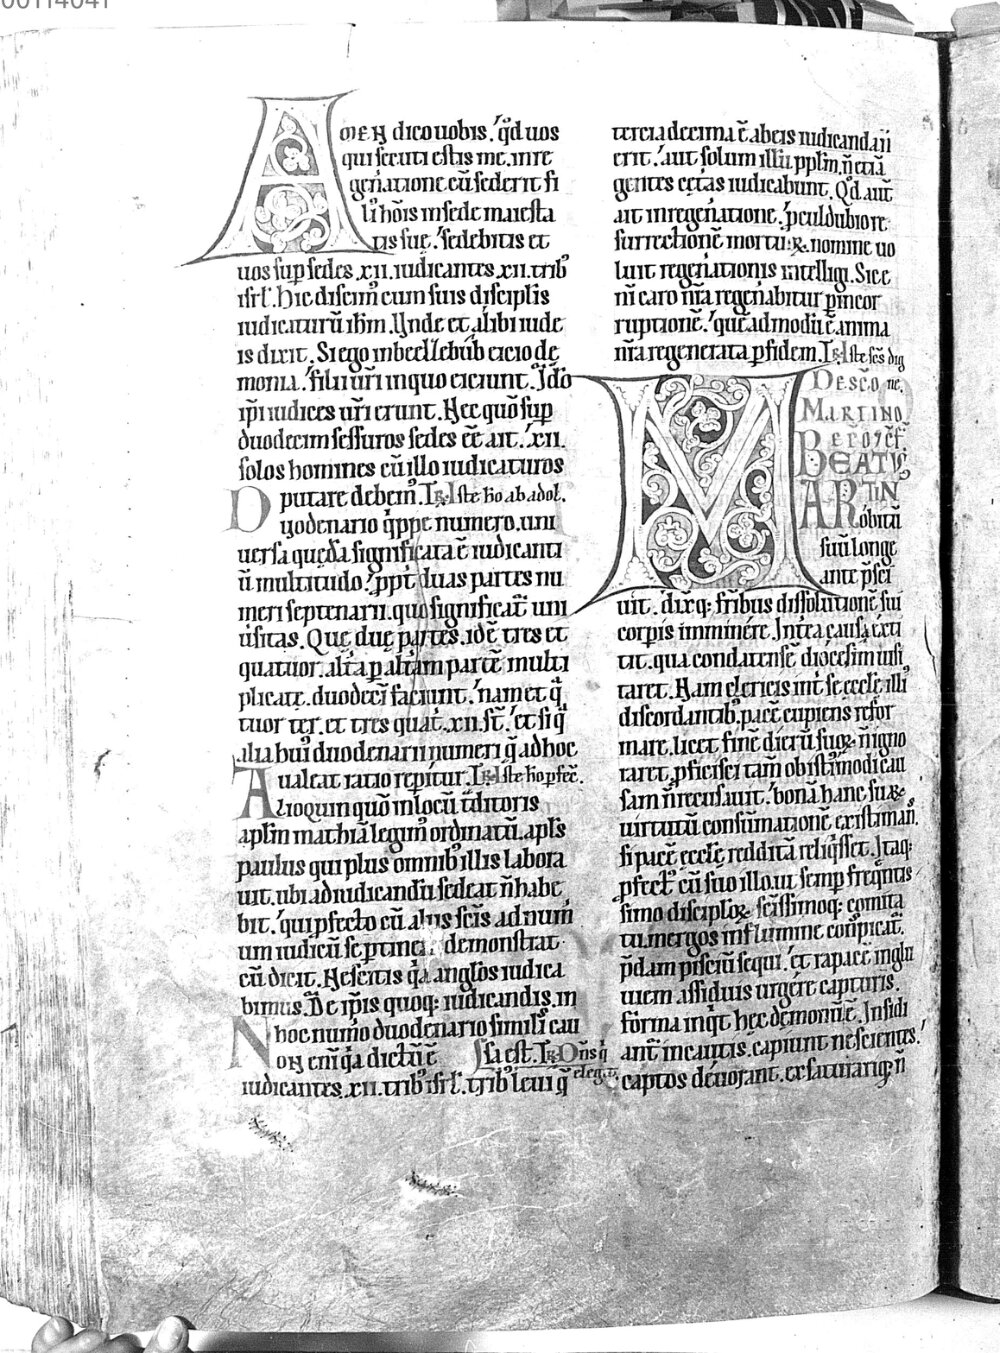 00114041
AMEN dico uobis. qd uos
qui secuti estis me. in re
gen̄atione. cū sederit fi
li hoīs in sede maiesta
tis sue. sedebitis et
uos sup sedes .xii. iudicantes .xii. trib
isrl̄. Hic discim cum suis discipl̄is
iudicaturū ihm̄. Vnde et alibi iude
is dixit. Si ego in beelzebub eicio de
monia. filii ur̄i in quo eiciunt. Ido
ip̄i iudices ur̄i erunt. Nec quō sup
duodecim sessuros sedes eē ait. xii.
solos homines cū illo iudicaturos
putare debem. R. Iste ho ab adol.
Duodenario q̄ppe numero. uni
uersa quedā significata ē iudicanti
ū multitudo. ppt duas partes nu
meri septenarii. quo significat uni
ūsitas. Que due partes. id ē tres et
quatuor. alt̄a p alt̄am partē multi
plicate. duodeci faciunt. nam et q̄
tuor ter. et tres quat̄. xii. st̄. et siq̄
alia hui duodenarii numeri q̄ ad hoc
ualeat ratio rep̄itur. R. Iste ho p̄fec̄.
Alioquin quō in locū t̄ditoris
aplm̄ mathiā legim ordinatū. apl̄s
paulus qui plus omnib illis labora
uit. ubi ad iudicandū sedeat n̄ habe
bit. qui pfecto cū aliis scīs ad num
um iudicū se ptine demonstrat
cū dicit. Nescitis q̄a angl̄os iudica
bimus. De ip̄is quoq; iudicandis. in
hoc num̄o duodenario similī cau
sa est. R. Dn̄s q̄
eleg.
Non enī q̄a dictū ē
iudicantes .xii. trib isrl̄. trib leui q̄
tercia decima ē ab eis iudicanda n̄
erit. aut solum illū pplm̄. n̄ etiā
gentes cetas iudicabunt. Qd aut̄
ait in regen̄atione. pculdubio re
surrectionē mortuoꝝ. nomine uo
luit regen̄ationis intelligi. Sic e
nī caro nr̄a regen̄abitur p incor
ruptionē. queadmodū ē anima
nr̄a regenerata p fidem. R. Iste scs̄ dig
DE SCO ne.
MARTINO
BEATVS
MARTIN
obitū
suū longe
ante p̄sci
uit. dixq: fr̄ibus dissolutionē sui
corpis imminere. Int̄a causa exti
tit. qua condatensē diocesim uisi
taret. Nam clericis int̄ se eccl̄e illi
discordantib. pacē cupiens refor
mare. licet finē dierū suoꝝ n̄ igno
raret. pficisci tam̄ ob istimodi cau
sam n̄ recusauit. bonā hanc suaꝝ
uirtutū consūmationē existiman̄.
si pacē eccl̄e redditā reliq̄sset. Itaq:
pfect cū suo illo. ut semp freq̄ntis
simo discipl̄oꝝ. scīssimoq: comita
tu. mergos in flumine conspicat̄.
p̄dam pisciū sequi. et rapacē inglu
uiem. assiduis urgere capturis.
Forma inqt hec demonū ē. Insidi
ant̄ incautis. capiunt nescientes.
captos deuorant. exsaturariq n̄